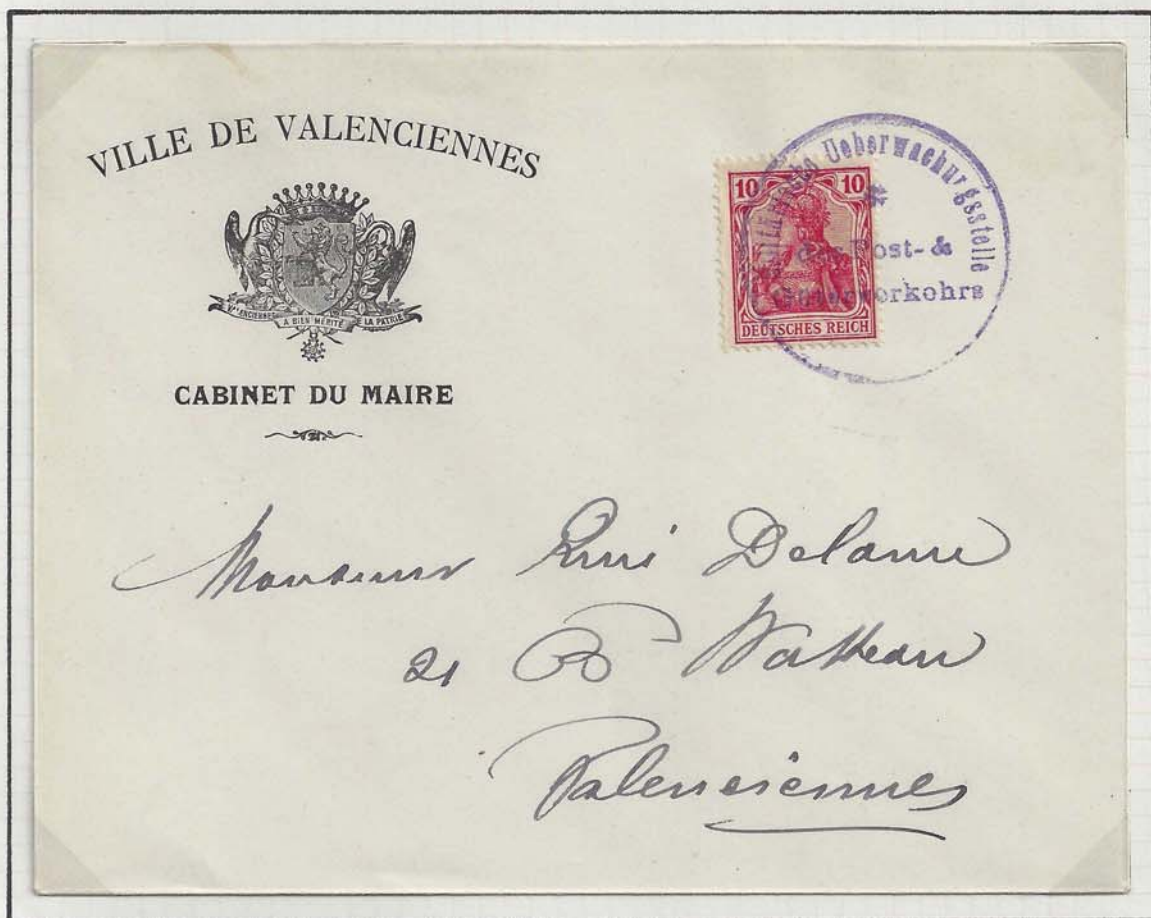 VILLE DE VALENCIENNES
VALENCIENNES A BIEN MÉRITÉ DE LA PATRIE
CABINET DU MAIRE
10 10
DEUTSCHES REICH
Ueberwachungsstelle
*
des Post- &
Güterverkehrs
Monsieur René Delame
21 Bd Watteau
Valenciennes